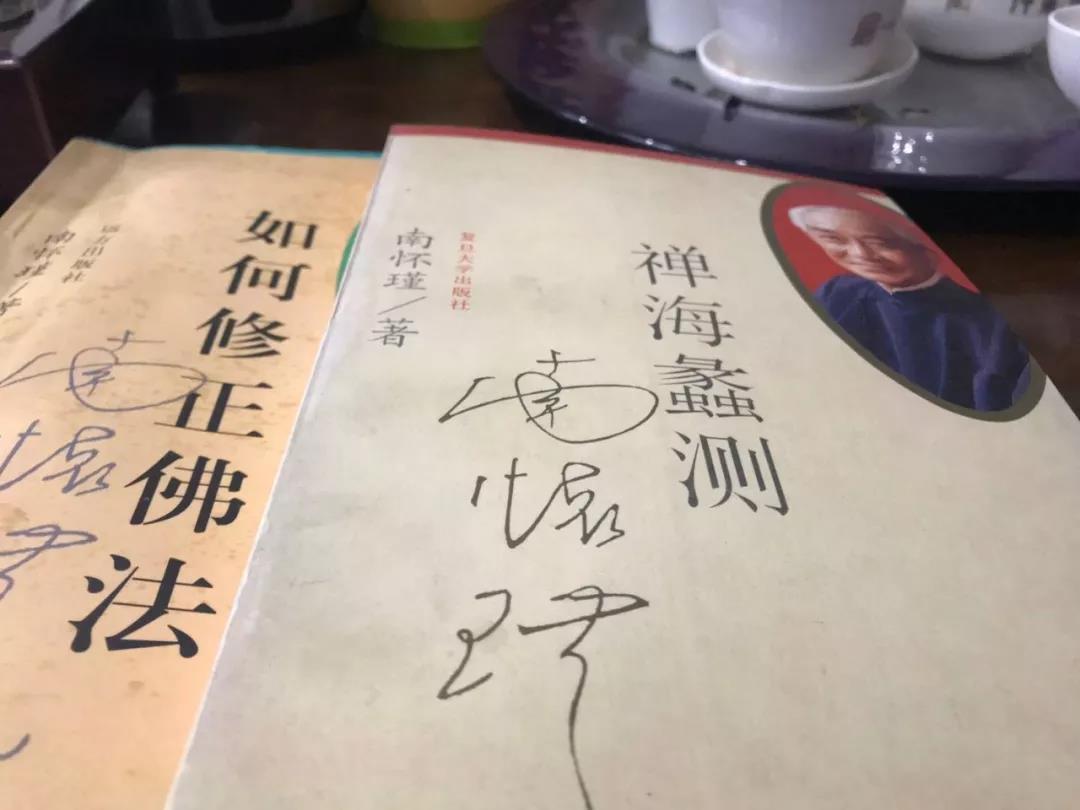 如何修正佛法
远方出版社
南怀瑾/著
南怀瑾
禅海蠡测
复旦大学出版社
南怀瑾/著
南怀瑾